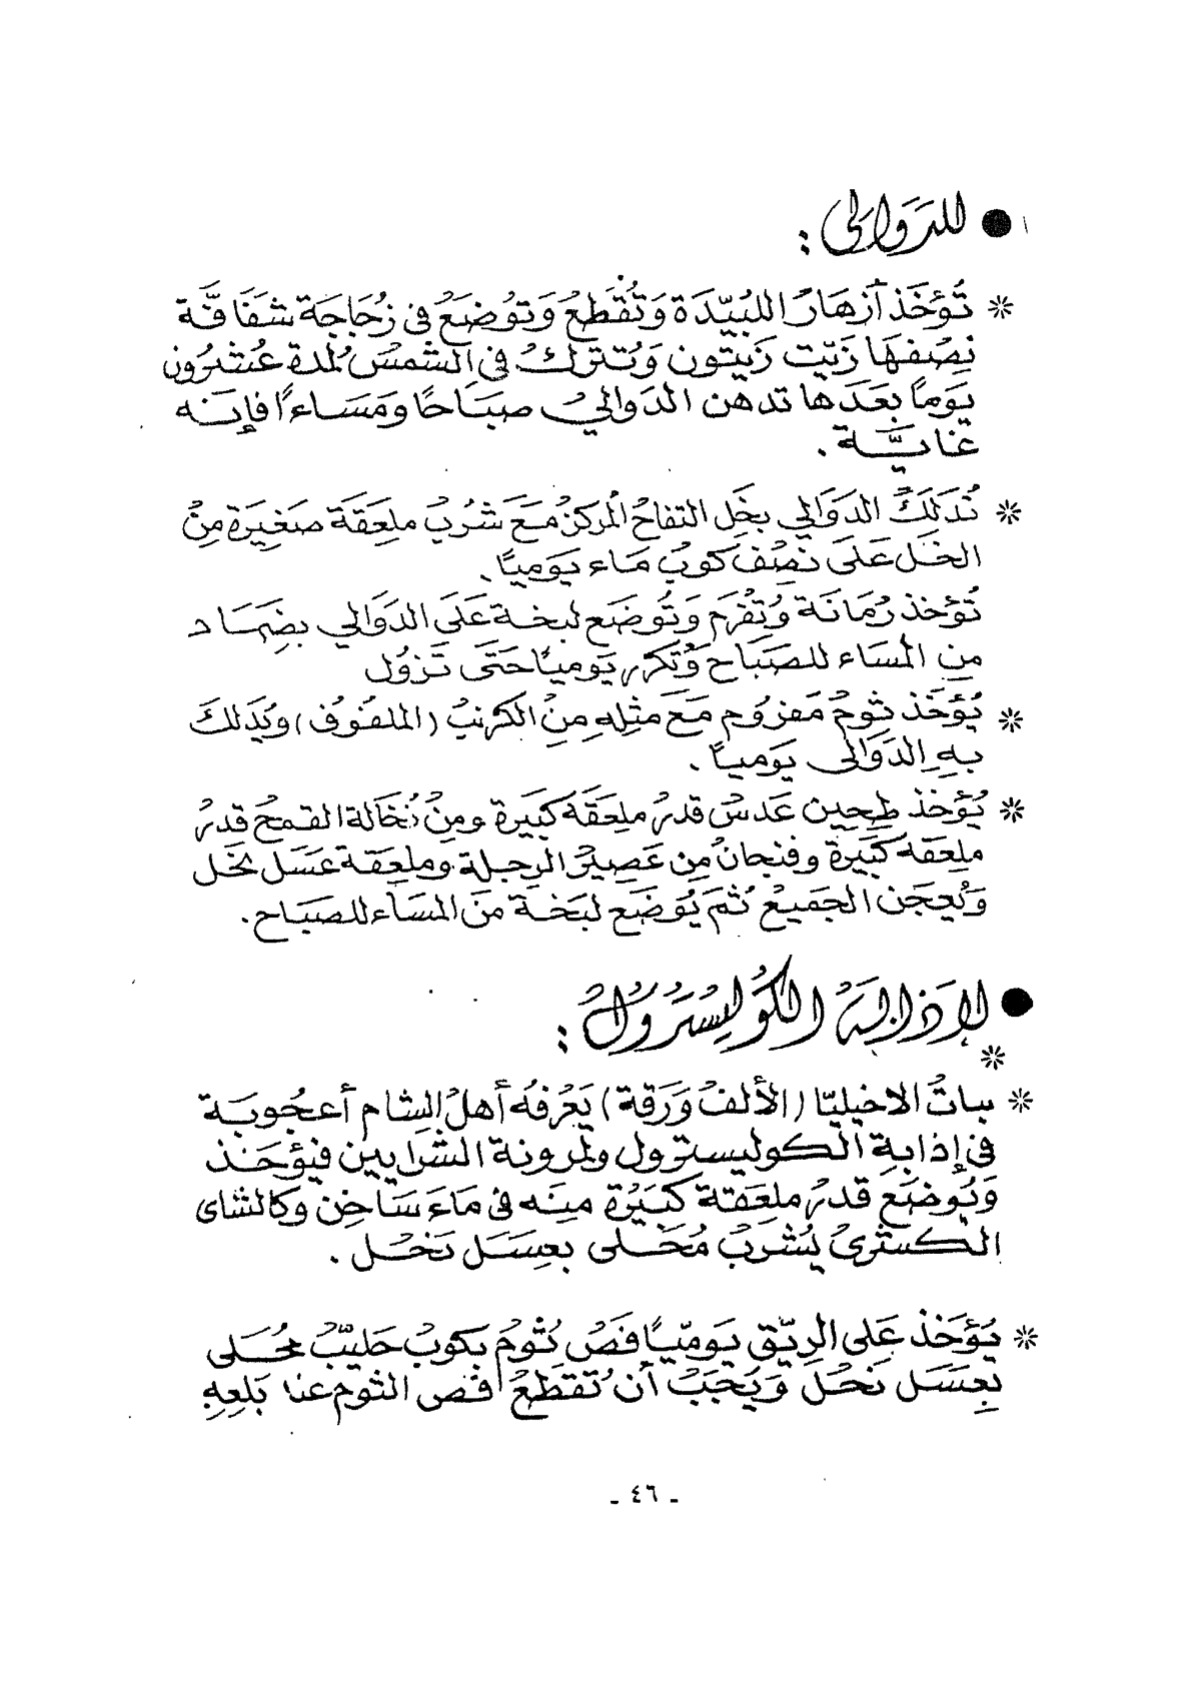 ● للدَوَالى :
* تُؤخَذ أزهَارُ اللبُيّدَة وَتُقَطعُ وَتوُضَعُ فى زُجَاجَة شفَافَّة
نِصُفهَا زَيّت زَيتون وَتتركُ فى الشمسُ لمُدة عُشرُون
يَومًا بعَدَها تدهن الدَواليُ صبَاحًا ومَسَاءًا فإنه
غايَّة .
* تُدَلكَ الدَوَالي بخَل التفاحُ المُركزُ مَعَ شرُبُ ملعَقَة صَغيَرة مِنُ
الخَل عَلىَ نصُف كوُب مَاء يَوميًا .
تُؤخذ رُمانَة وَتُفرَم وَتُوضَع لبخة عَلَى الدَوَالي بضِمَاد
مِن المَساء للصَبَاح وَتُكرر يَوميًا حَتىَ تَزوُل
* يُؤخَذ ثِومُ مَفروُم مَعَ مثِله مِنُ الكرنبُ (الملفوُف) ويُدَلكَ
بهِ الدَوَالى يَوميًا .
* يُؤخَذ طِحين عَدسُ قدرُ ملعَقَة كبَيرة ومِنُ نُخَالة القمحُ قدرُ
ملِعَقة كبَيَرة وفنجانُ مِن عَصِيرُ الرجلة وملعِقة عَسَل نحَل
وَتُعجَن الجَميعُ ثُمَ يُوَضَع لبَخَة مِنَ المسَاء للصبَاح.
● لإذابة الكوليسترول :
*
* نباتُ الاخيليّا (الألفُ وَرَقة) يَعُرفهُ أهلُ الشام أعجُوبَة
فى إذابةِ الكوليسترول ولمرونة الشرَايين فيؤخَذ
وَيُوضَع قدرُ ملعَقة كبَيُرة مِنه فى مَاءَ سَاخِن وكالشاى
الكشرىُ يُشرَبُ مُحَلى بعِسَل نَحُل .
* يُؤخَذ عَلى الريّق يَوميّاً فَصُ ثُومُ بكوُبُ حَليّبُ محُلى
بِعسَل نَحُلُ وَيَجَبُ أن تُقطَعُ فص الثوم عنا بَلعِهِ
- ٤٦ -